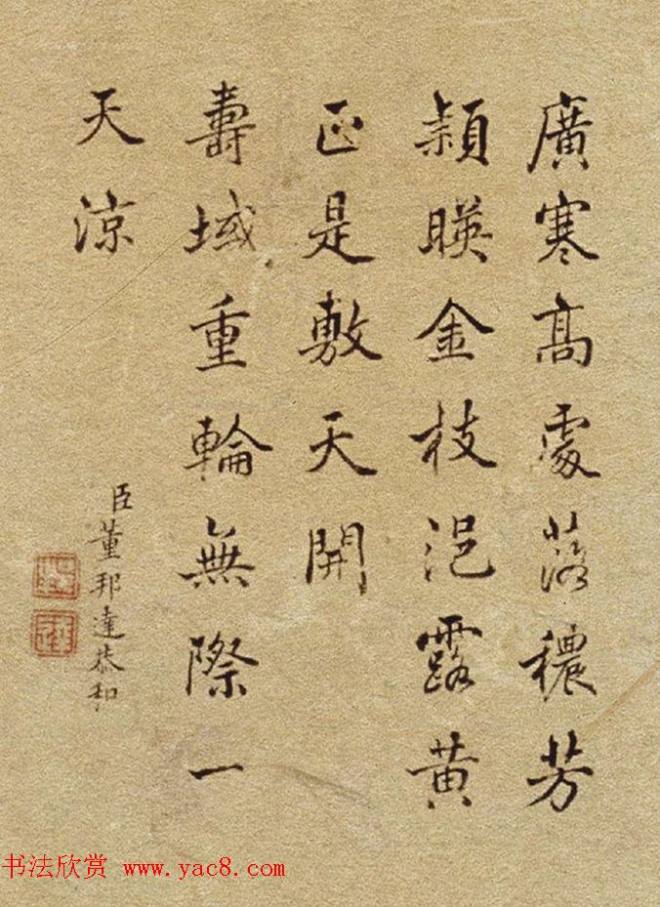 廣寒高處落穠芳
穎暎金枝浥露黃
正是敷天開
壽域重輪無際一
天涼
臣董邦達恭和
书法欣赏 www.yac8.com